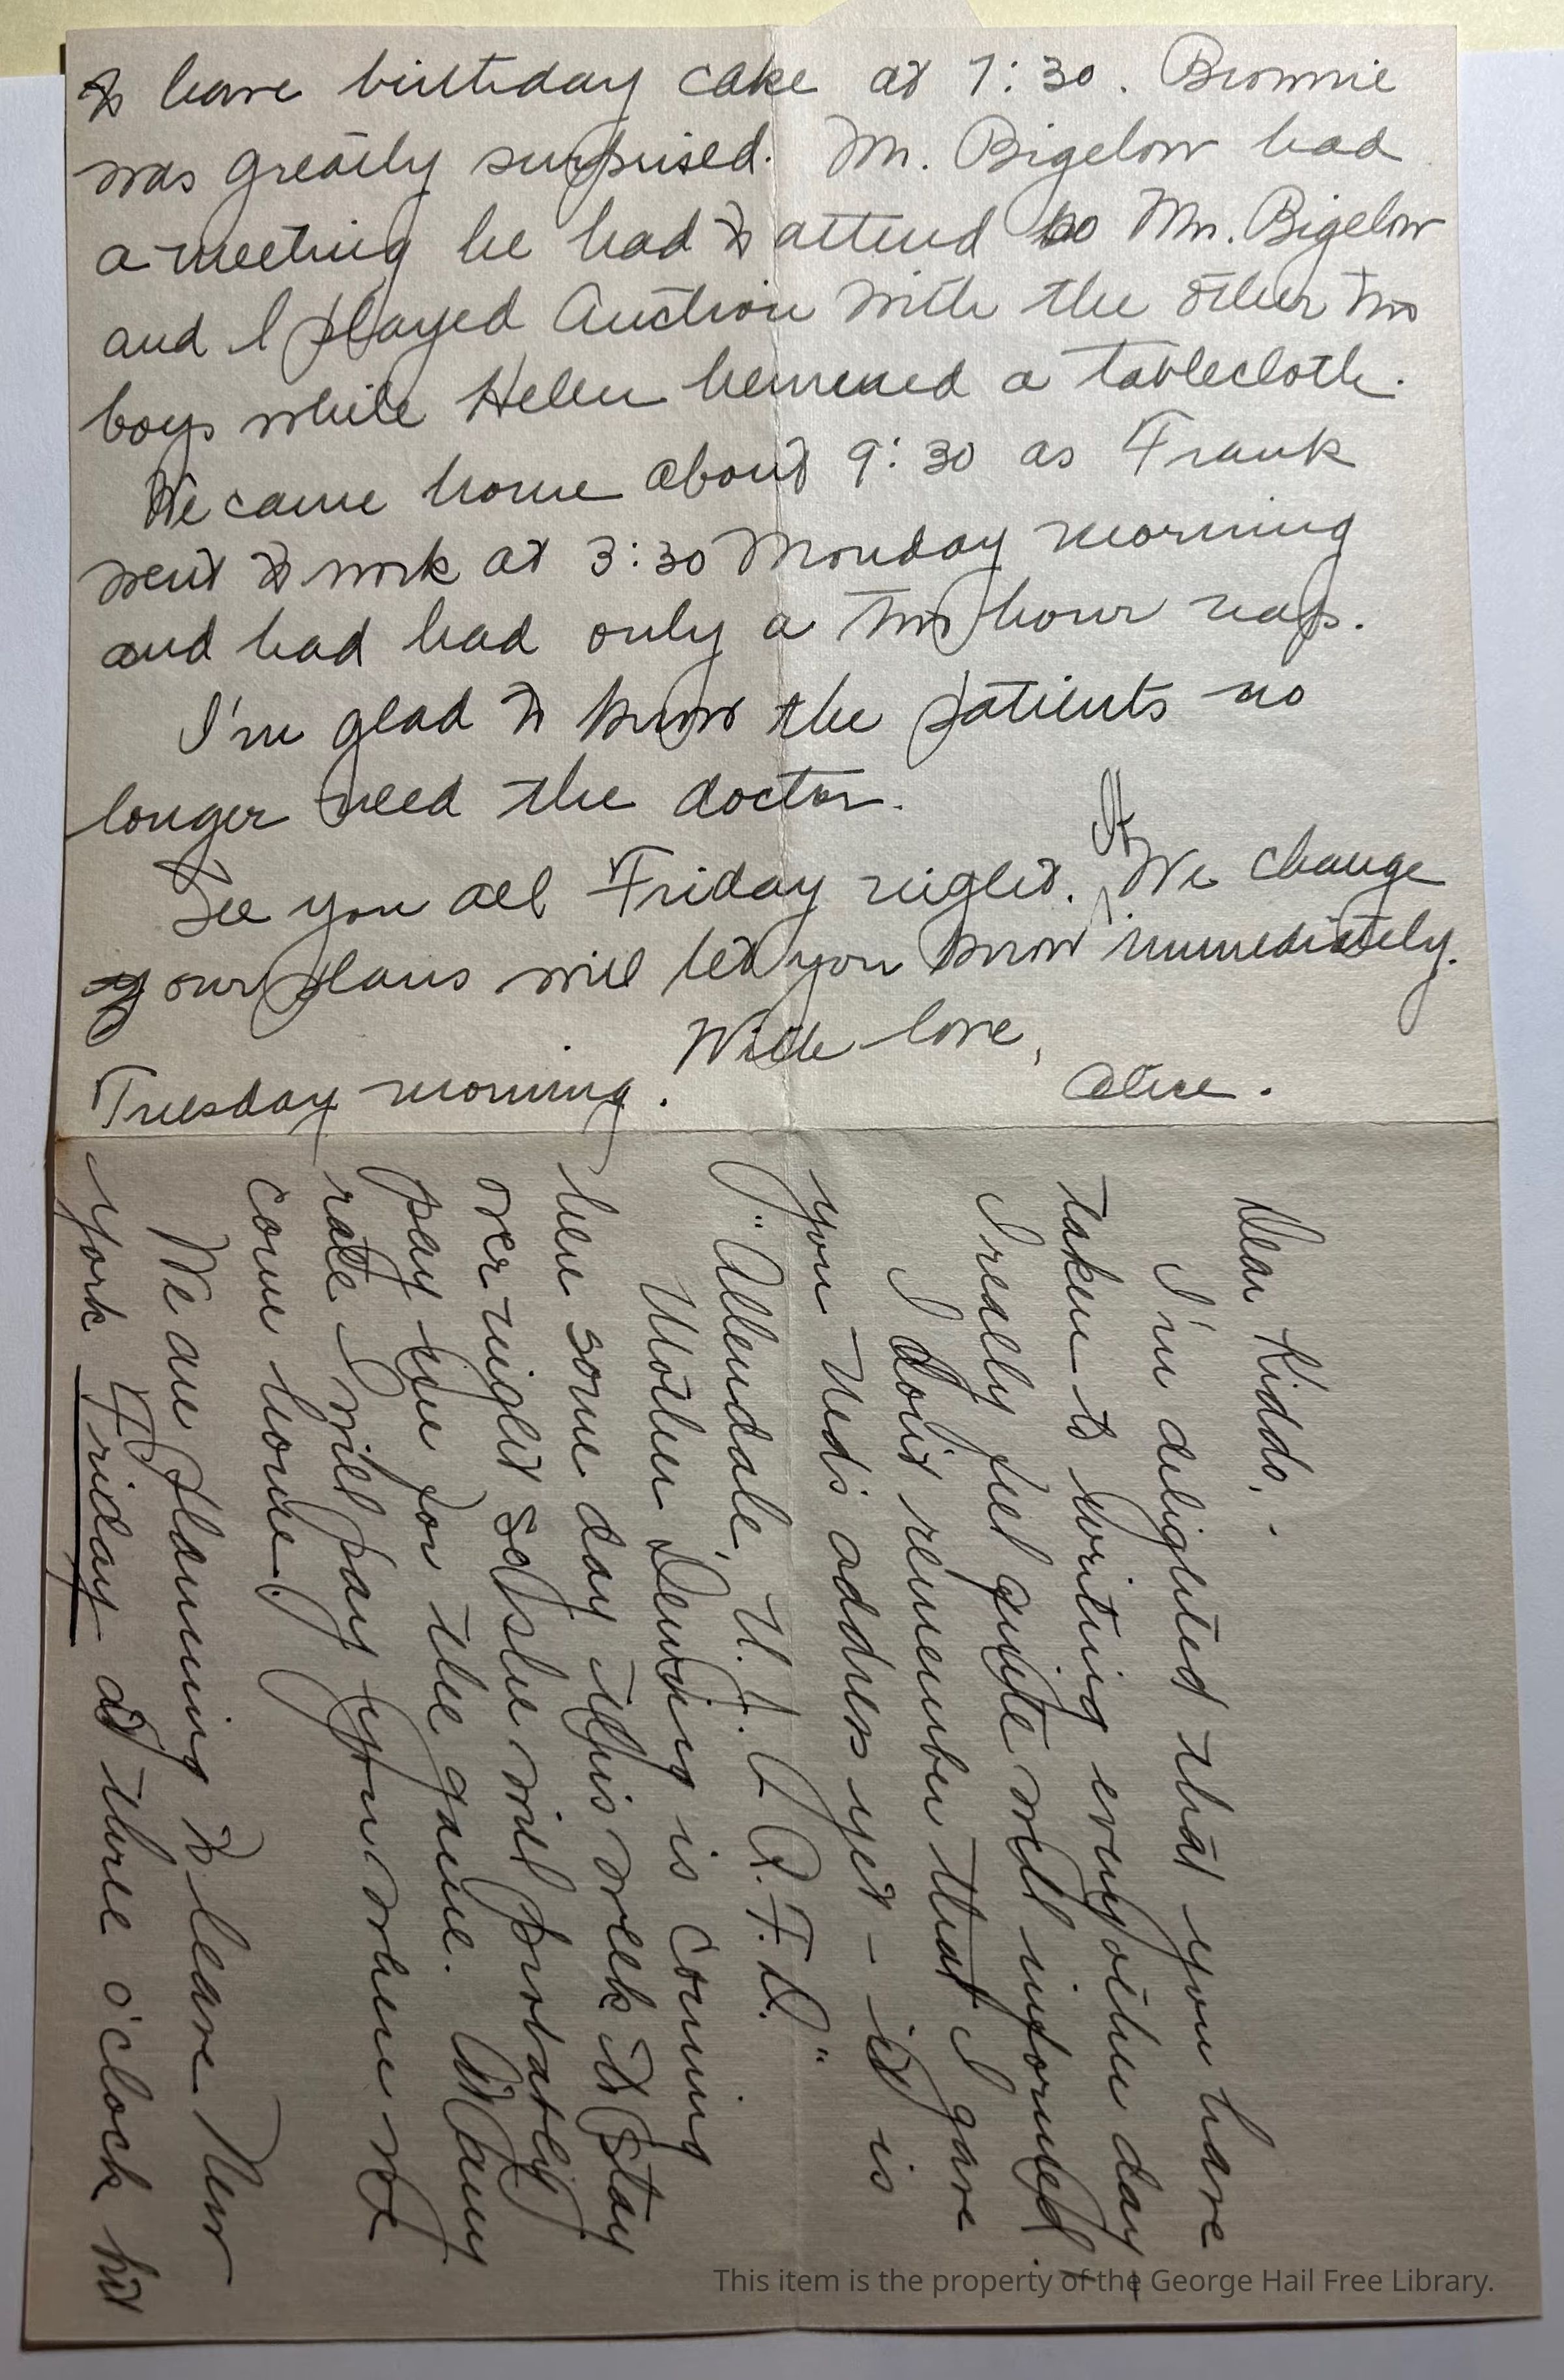 Dear Kiddo, -
I'm delighted that you have
taken to writing every other day -
I really feel quite well informed.
I don't remember that I gave
you Ned's address yet - it is
"Allendale, N. J. R. F. D."
Mother Dewing is coming
here some day this week to stay
over night so she will probably
pay me for the game. At any
rate I will pay you when we
come home.
We are planning to leave New
York Friday at three o'clock but
to have birthday cake at 7:30. Brownie
was greatly surprised. Mr. Bigelow had
a meeting he had to attend so Mrs. Bigelow
and I played Auction with the other two
boys while Helen hemmed a tablecloth.
We came home about 9:30 as Frank
went to work at 3:30 Monday morning
and had had only a two hour nap.
I'm glad to know the patients no
longer need the doctor.
See you all Friday night. If We change
our plans will let you know immediately.
With love,
Alice.
Tuesday morning.
This item is the property of the George Hail Free Library.